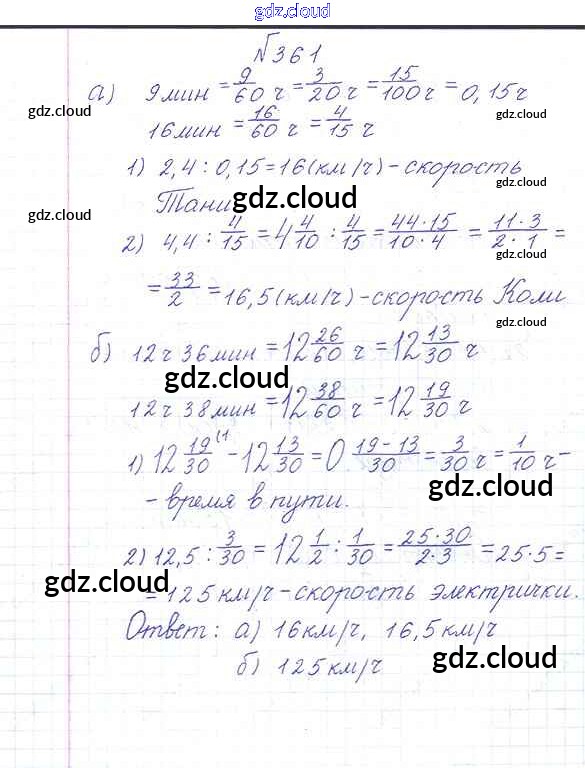 gdz.cloud
№361
а) 9мин = 9/60 ч = 3/20 ч = 15/100 ч = 0,15ч
gdz.cloud
gdz.cloud
16мин = 16/60 ч = 4/15 ч
1) 2,4 : 0,15 = 16(км/ч) - скорость
gdz.cloud
Тани
gdz.cloud
gdz.cloud
2) 4,4 : 4/15 = 4 4/10 : 4/15 = 44·15/10·4 = 11·3/2·1 =
= 33/2 = 16,5(км/ч) - скорость Коли
б) 12ч 36мин = 12 26/60 ч = 12 13/30 ч
gdz.cloud
12ч 38мин = 12 38/60 ч = 12 19/30 ч
1) 12 19/30 (1 - 12 13/30 = 0 19-13/30 = 3/30 ч = 1/10 ч -
gdz.cloud
- время в пути.
2) 12,5 : 3/30 = 12 1/2 : 1/30 = 25·30/2·3 = 25·5 =
gdz.cloud
= 125км/ч - скорость электрички.
Ответ: а) 16км/ч, 16,5км/ч
б) 125км/ч
gdz.cloud